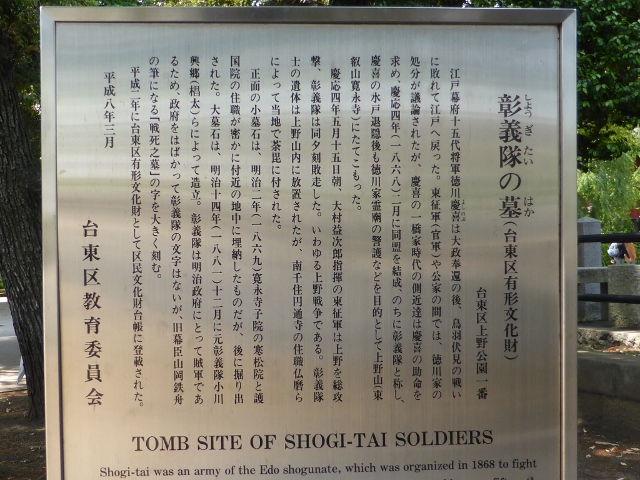 しょうぎたい はか
彰義隊の墓(台東区有形文化財)
台東区上野公園一番
よしのぶ
江戸幕府十五代将軍徳川慶喜は大政奉還の後、鳥羽伏見の戦い
に敗れて江戸へ戻った。東征軍(官軍)や公家の間では、徳川家の
処分が議論されたが、慶喜の一橋家時代の側近達は慶喜の助命を
求め、慶応四年(一八六八)二月に同盟を結成、のちに彰義隊と称し、
慶喜の水戸退隠後も徳川家霊廟の警護などを目的として上野山(東
叡山寛永寺)にたてこもった。
慶応四年五月十五日朝、大村益次郎指揮の東征軍は上野を総攻
撃、彰義隊は同夕刻敗走した。いわゆる上野戦争である。彰義隊
士の遺体は上野山内に放置されたが、南千住円通寺の住職仏磨ら
によって当地で荼毘に付された。
正面の小墓石は、明治二年(一八六九)寛永寺子院の寒松院と護
国院の住職が密かに付近の地中に埋納したものだが、後に掘り出
された。大墓石は、明治十四年(一八八一)十二月に元彰義隊小川
興郷(椙太)らによって造立。彰義隊は明治政府にとって賊軍であ
るため、政府をはばかって彰義隊の文字はないが、旧幕臣山岡鉄舟
の筆になる「戦死之墓」の字を大きく刻む。
平成二年に台東区有形文化財として区民文化財台帳に登載された。
平成八年三月
台東区教育委員会
TOMB SITE OF SHOGI-TAI SOLDIERS
Shogi-tai was an army of the Edo shogunate, which was organized in 1868 to fight